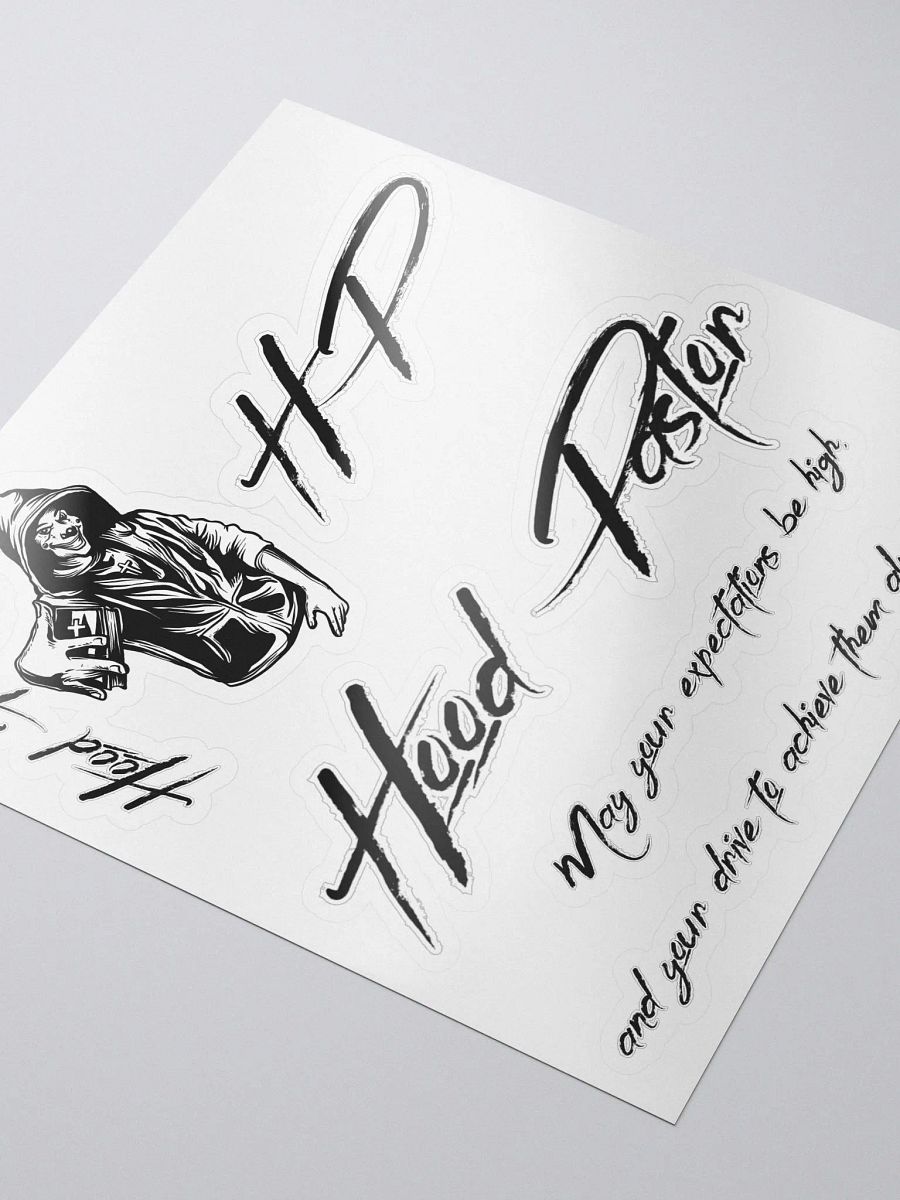 HP
Pastor
Hood
May your expectations be high,
and your drive to achieve them
Hood